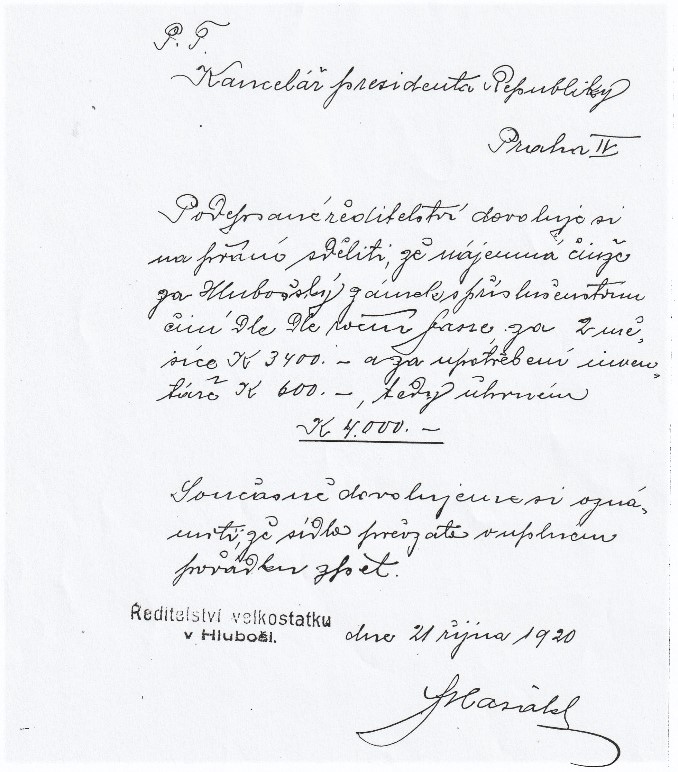 P. T.
Kancelář presidenta Republiky
Praha IV
Podepsané ředitelství dovoluje si
na přání sděliti, že nájemná činže
za Hlubošský zámek s příslušenstvím
činí dle dle roční fasse za 2 mě,
síce K 3400.- a za upotřebení inven,
táře K 600.-, tedy úhrnem
K 4.000.-
Současně dovolujeme si ozná,
miti, že sídlo převzato v úplném
pořádku zpět.
Ředitelství velkostatku
v Hluboši.
dne 21 října 1920